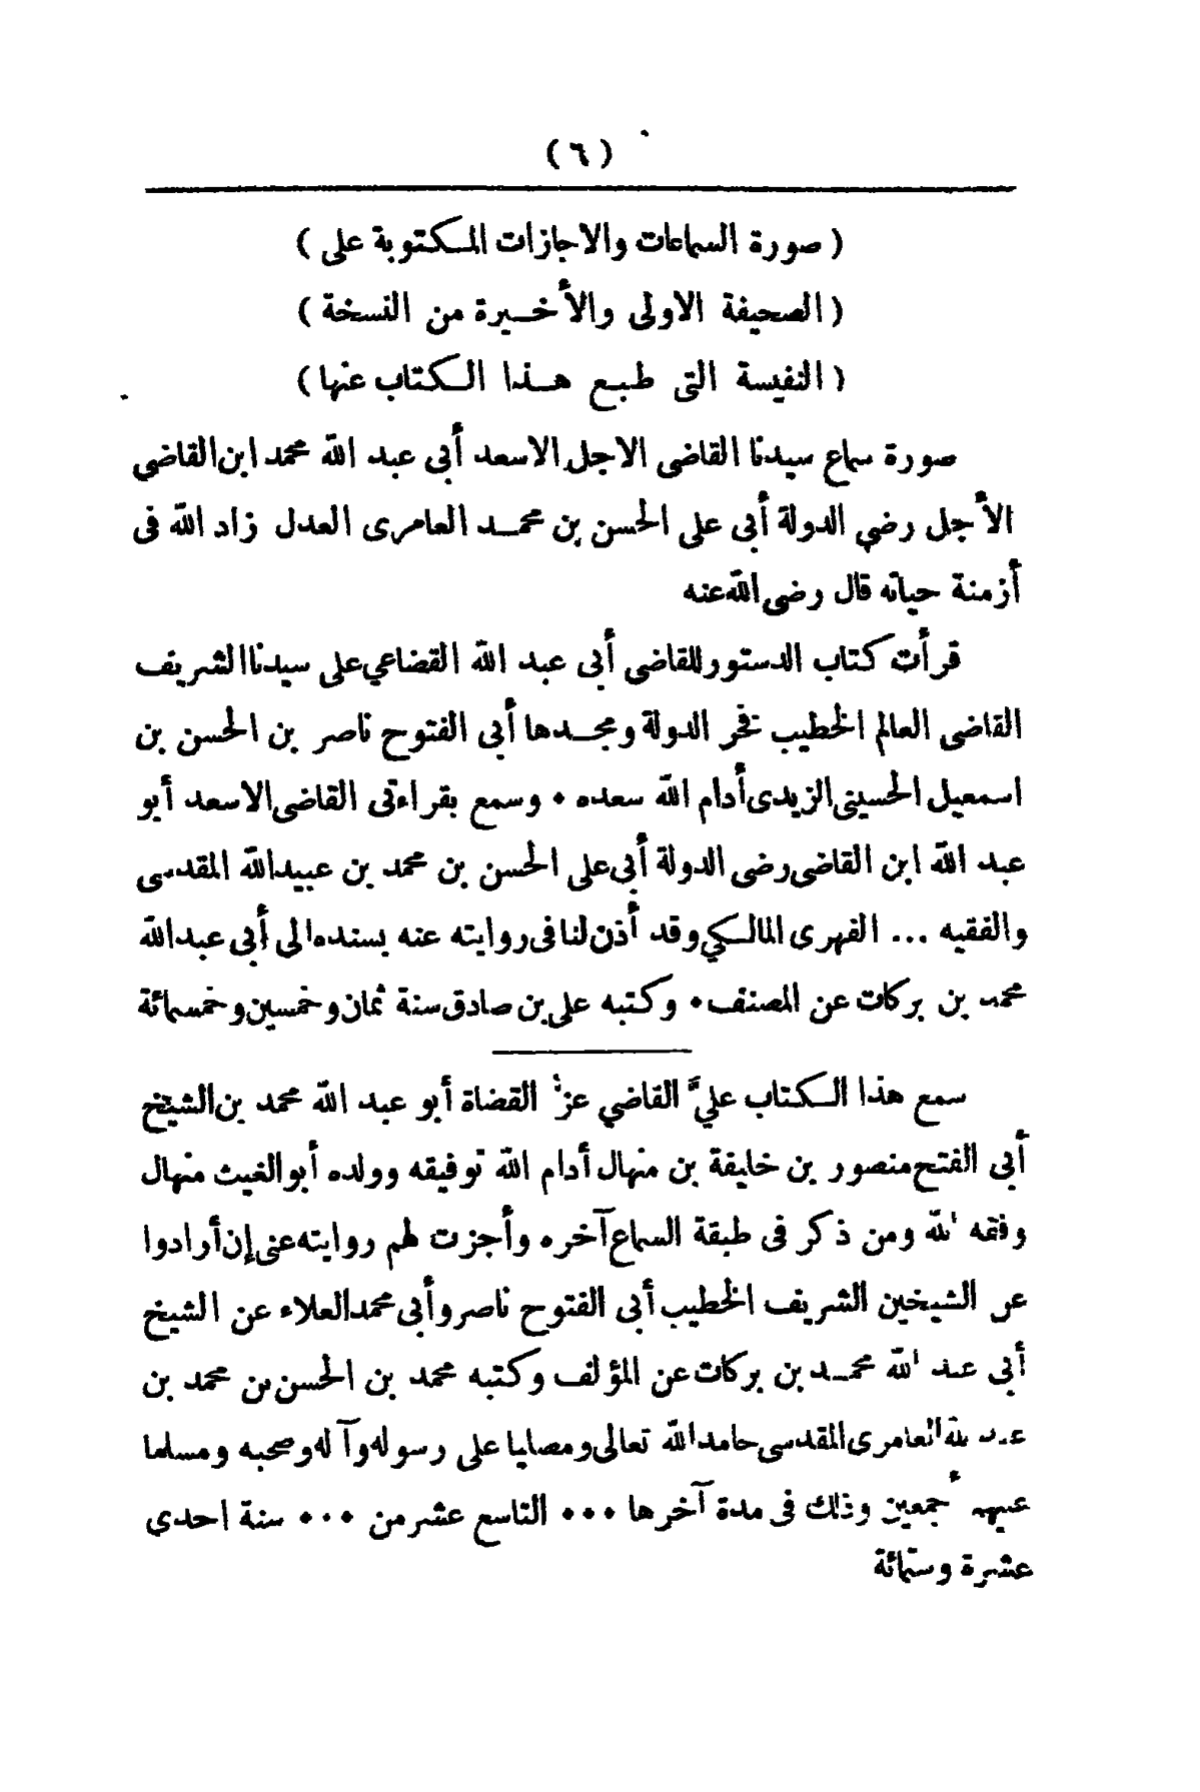 ( ٦ )
( صورة السماعات والاجازات المكتوبة على )
( الصحيفة الاولى والأخيرة من النسخة )
( النفيسة التى طبع هذا الكتاب عنها )
صورة سماع سيدنا القاضى الاجل الاسعد أبى عبد الله محمد ابن القاضي
الأجل رضي الدولة أبى على الحسن بن محمد العامرى العدل زاد الله فى
أزمنة حياته قال رضى الله عنه
قرأت كتاب الدستور للقاضى أبى عبد الله القضاعي على سيدنا الشريف
القاضى العالم الخطيب فخر الدولة ومجدها أبى الفتوح ناصر بن الحسن بن
اسمعيل الحسينى الزيدى أدام الله سعده • وسمع بقراءتى القاضى الاسعد أبو
عبد الله ابن القاضى رضى الدولة أبى على الحسن بن محمد بن عبيدالله المقدسى
والفقيه ... الفهرى المالكي وقد أذن لنا فى روايته عنه بسنده الى أبى عبدالله
محمد بن بركات عن المصنف • وكتبه على بن صادق سنة ثمان وخمسين وخمسمائة
سمع هذا الكتاب عليَّ القاضي عز القضاة أبو عبد الله محمد بن الشيخ
أبى الفتح منصور بن خليفة بن منهال أدام الله توفيقه وولده أبو الغيث منهال
وفقه الله ومن ذكر فى طبقة السماع آخره وأجزت لهم روايته عنى إن أرادوا
عن الشيخين الشريف الخطيب أبى الفتوح ناصر وأبى محمد العلاء عن الشيخ
أبى عبد الله محمد بن بركات عن المؤلف وكتبه محمد بن الحسن بن محمد بن
عبيد الله العامرى المقدسى حامد الله تعالى ومصليا على رسوله وآله وصحبه ومسلما
عليهم أجمعين وذلك فى مدة آخرها ••• التاسع عشر من ••• سنة احدى
عشرة وستمائة